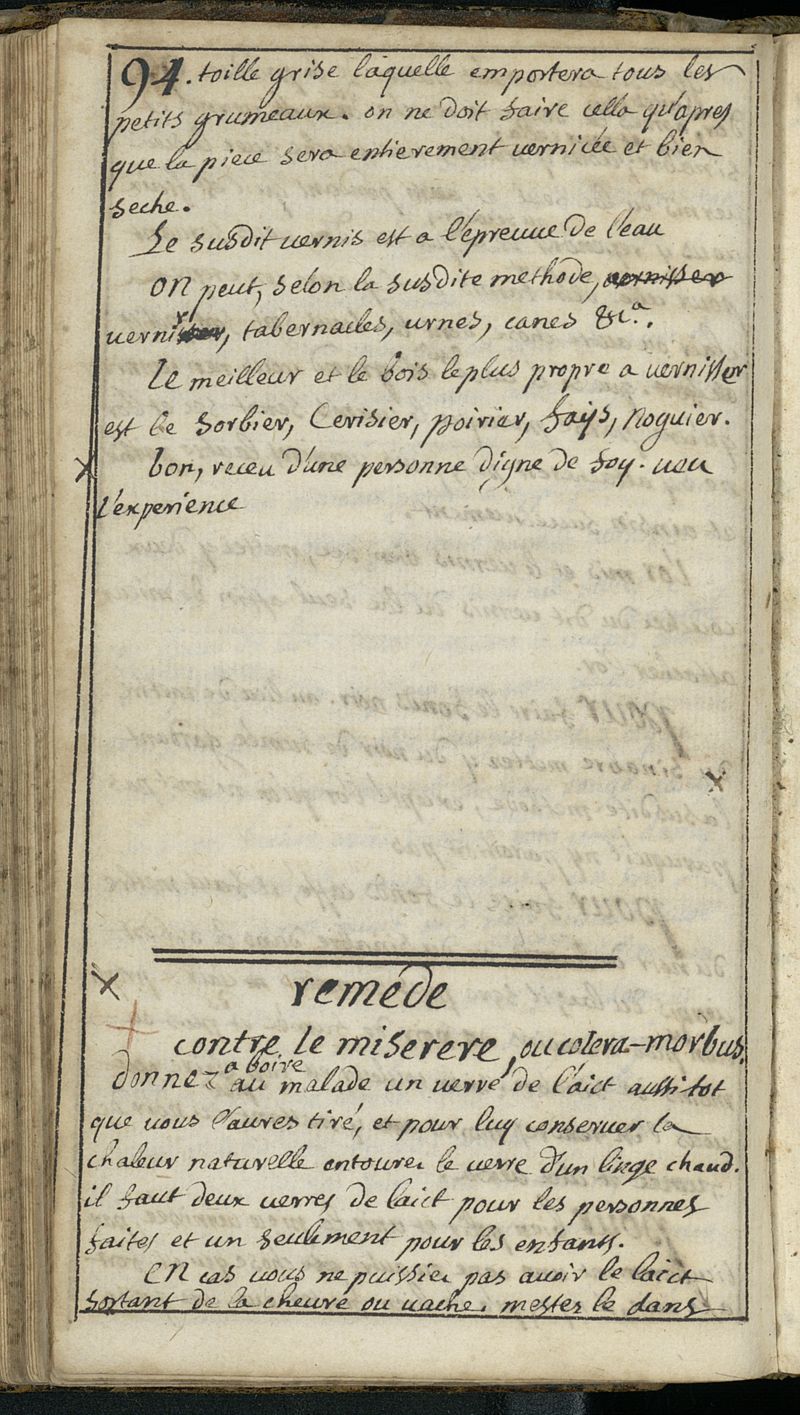 94. toille grise laquelle emportera tous les
petits grumeaux. on ne doit faire cella qu'apres
que la piece sera entierement vernicée et bien
seche.
Le susdit vernis est a l'épreuve de l'eau
on peut, selon la susdite methode, vernisser
vernir, tabernacles, urnes, canes &ca.
le meilleur et le bois le plus propre a vernisser
est le sorbier, Cerisier, poirier, fays, noguier.
bon, receu d'une personne digne de foy. veu
l'experience
remede
contre le miserere, ou colera-morbus.
a boire
donnez au malade un verre de laict aussitot
que vous l'aures tiré, et pour luy conserver la
chaleur naturelle entourez le verre d'un linge chaud.
il faut deux verres de laict pour les personnes
faites et un seulement pour les enfants.
en cas vous ne puissiez pas avoir le laict
sortant de la chevre ou vache. mettez le dans